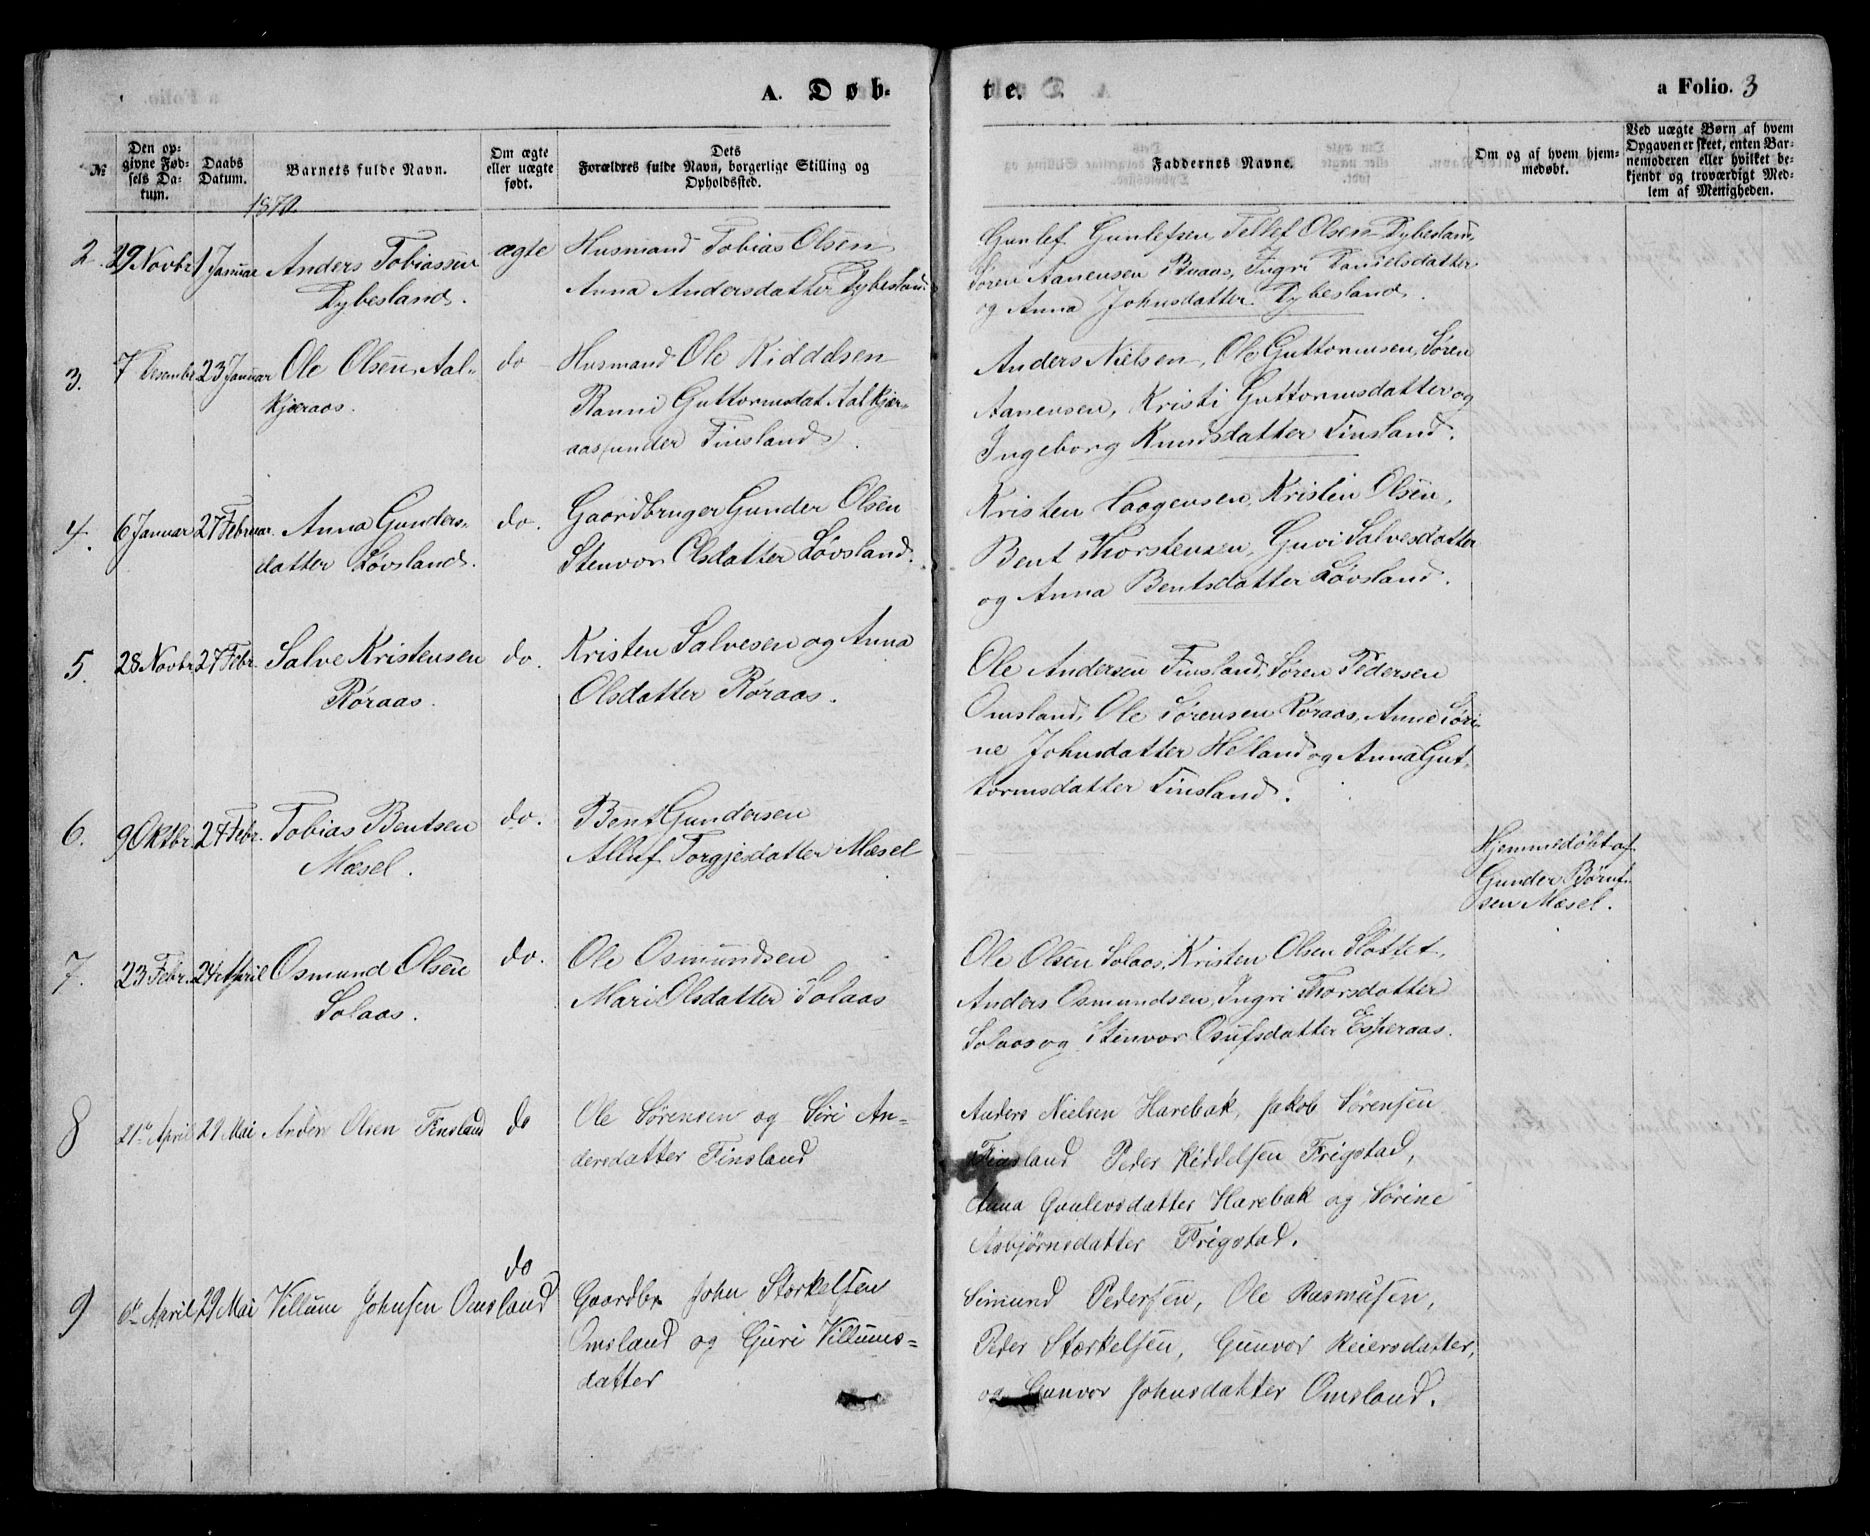 A. Døb-
te.
a Folio. 3
№
Den op-
givne Fød-
sels Da-
tum.
Daabs
Datum.
Barnets fulde Navn.
Om ægte
eller uægte
født.
Dets
Forældres fulde Navn, borgerlige Stilling og
Opholdssted.
Faddernes Navne.
Om og af hvem hjem-
medøbt.
Ved uægte Børn af hvem
Opgaven er skeet, enten Bar-
nemoderen eller hvilket be-
kjendt og troværdigt Med-
lem af Menigheden.
1870
2. 29 Novbr 1 Januar Anders Tobiassen
Dybesland.
ægte
Husmand Tobias Olsen
Anna Andersdatter Dybesland.
Gunlef Gunlefsen, Tellef Olsen Dybesland,
Søren Aanensen Buaas, Ingri Danielsdatter
og Anna Johnsdatter Dybesland.
3. 7 Desembr 23 Januar Ole Olsen Aal-
kjæraas.
do
Husmand Ole Kiddelsen
Ranni Guttormsdat. Aalkjær-
aas under Finsland.
Anders Nielsen, Ole Guttormsen, Søren
Aanensen, Kristi Guttormsdatter og
Ingeborg Knudsdatter Finsland.
4. 6 Januar 27 Februar. Anna Gunders-
datter Løvsland.
do.
Gaardbruger Gunder Olsen
Stenvor Olsdatter Løvsland.
Kristen Haagensen, Kristen Olsen,
Bent Thorstensen, Guri Salvesdatter
og Anna Bentsdatter Løvsland.
5. 28 Novbr 27 Febr. Salve Kristensen
Røraas.
do.
Kristen Salvesen og Anna
Olsdatter Røraas.
Ole Andersen Finsland, Søren Pedersen
Omsland, Ole Sørensen Røraas, Anne Søri-
ne Johnsdatter Helland og Anna Gut-
tormsdatter Finsland.
6. 9 Oktbr. 27 Febr. Tobias Bentsen
Mæsel.
do.
Bent Gundersen
Alluf Torgjesdatter Mæsel
Hjemmedøbt af
Gunder Børuf-
sen Mæsel.
7. 23 Febr. 24 April Osmund Olsen
Solaas.
do.
Ole Osmundsen
Mari Olsdatter Solaas
Ole Olsen Solaas, Kristen Olsen Slottet,
Anders Osmundsen, Ingri Thorsdatter
Solaas og Stenvor Osufsdatter Esperaas.
8 21de April 29 Mai Anders Olsen Finsland
do
Ole Sørensen og Siri An-
dersdatter Finsland
Anders Nielsen Harebak, Jakob Sørensen
Finsland Peder Kiddelsen Frigstad,
Anna Gunlevsdatter Harebak og Sørine
Asbjørnsdatter Frigstad.
9 6te April 29 Mai Villum Johnsen Omsland
do
Gaardbr. John Stærkelsen
Omsland og Guri Villums-
datter
Simund Pedersen, Ole Rasmusen,
Peder Stærkelsen, Gunvor Reiersdatter,
og Gunvor Johnsdatter Omsland.